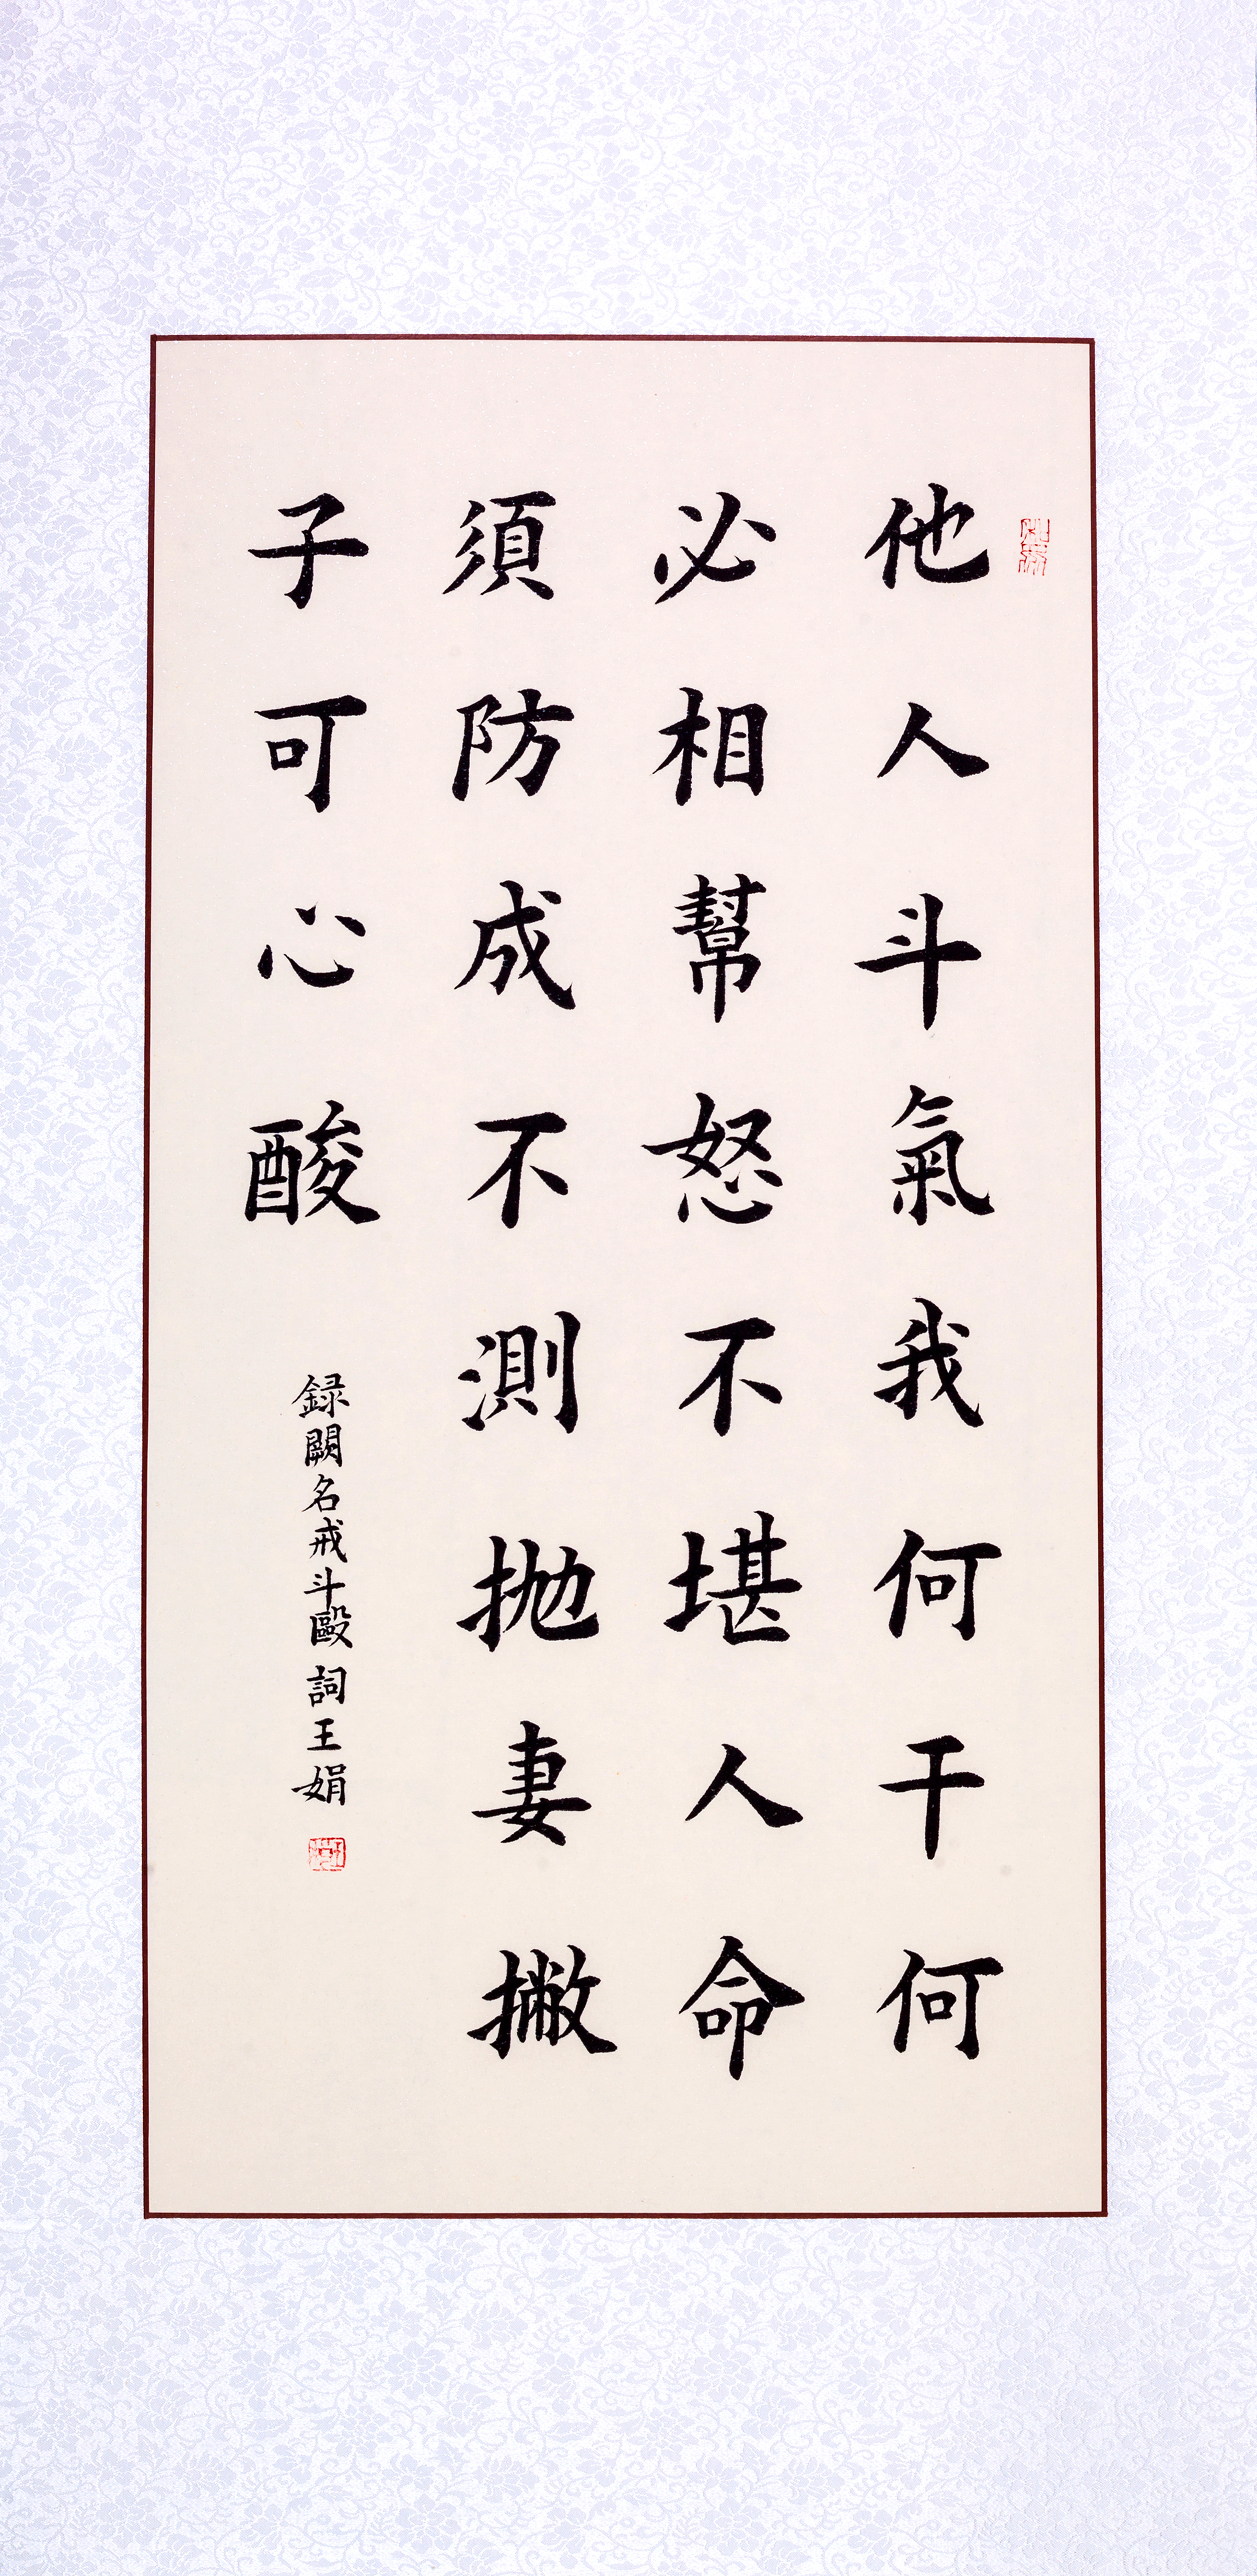 他人斗氣我何干何
必相幫怒不堪人命
須防成不測抛妻撇
子可心酸
録闕名戒斗毆詞王娟